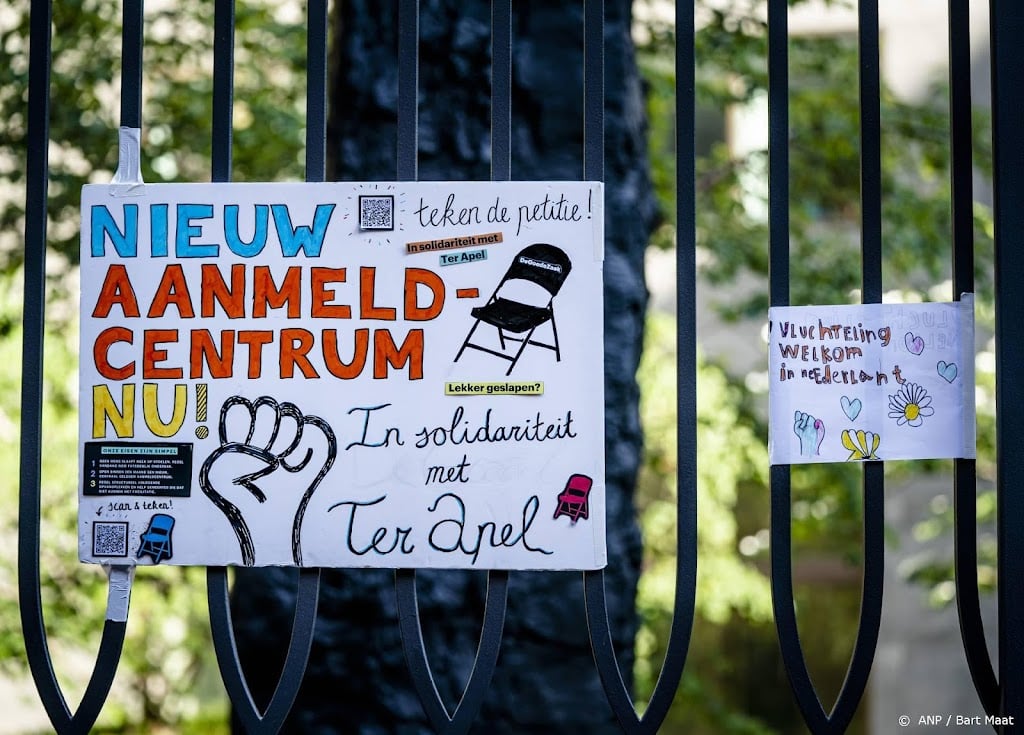 NIEUW
AANMELD-
CENTRUM
NU!
teken de petitie!
In solidariteit met
Ter Apel
DeGoedeZaak
Lekker geslapen?
In solidariteit
met
Ter Apel
ONZE EISEN ZIJN SIMPEL
1
2
3
scan & teken!
VLUCHTELING
WELKOM
in nEEderlant
© ANP / Bart Maat